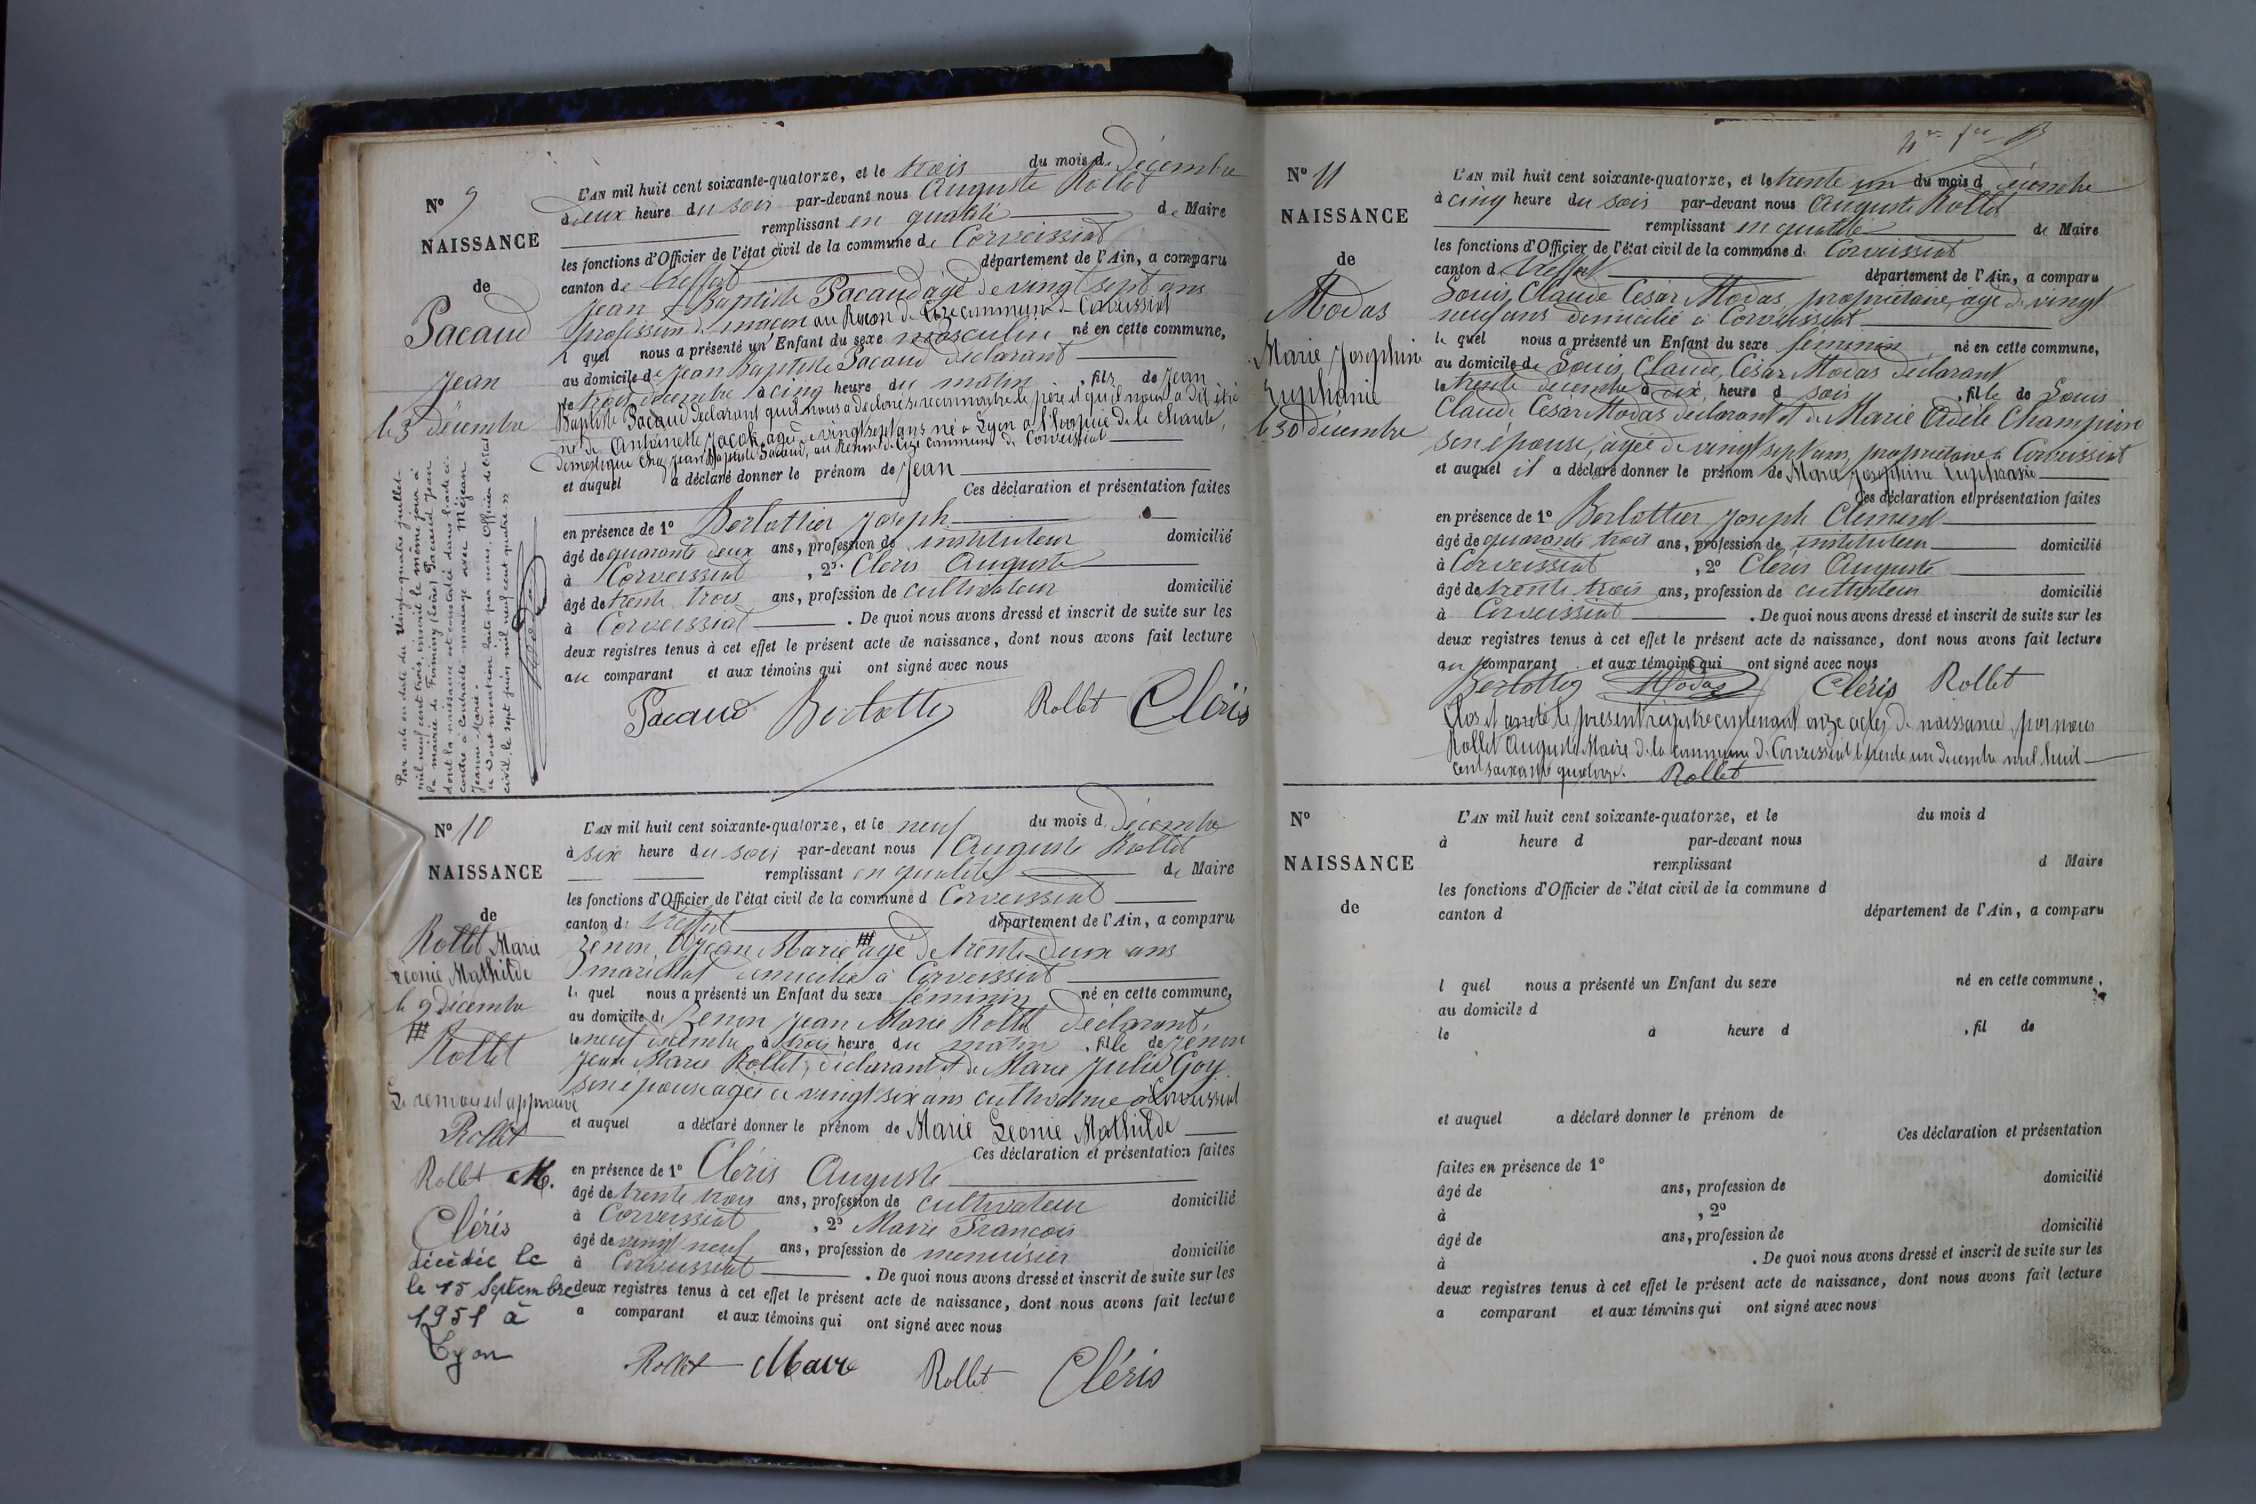 N° 9
NAISSANCE
de
Pacaud
Jean
le 3 décembre
L'AN mil huit cent soixante-quatorze, et le trois du mois de Décembre
à deux heure du soir par-devant nous Auguste Rollet
remplissant en qualité de Maire
les fonctions d'Officier de l'état civil de la commune de Corveissiat
canton de Treffort département de l'Ain, a comparu
Jean Baptiste Pacaud âgé de vingt sept ans
profession de maçon au hameau de Cize commune de Corveissiat
l quel nous a présenté un Enfant du sexe masculin né en cette commune,
au domicile de Jean Baptiste Pacaud déclarant
le trois décembre à cinq heure du matin , fils de Jean
Baptiste Pacaud déclarant qu'il nous a déclaré se reconnaître le père et qu'il nous a dit être
né de Antoinette Jacob agée de vingt sept ans né à Lyon à l'hospice de la Charité,
domestique chez Jean Baptiste Pacaud, au hameau de Cize commune de Corveissiat
et auquel a déclaré donner le prénom de Jean
Ces déclaration et présentation faites
en présence de 1° Berlottier Joseph
âgé de quarante deux ans, profession de instituteur domicilié
à Corveissiat , 2° Cléris Auguste
âgé de trente trois ans, profession de cultivateur domicilié
à Corveissiat . De quoi nous avons dressé et inscrit de suite sur les
deux registres tenus à cet effet le présent acte de naissance, dont nous avons fait lecture
au comparant et aux témoins qui ont signé avec nous
Pacaud Berlottier Rollet Cléris
Par acte en date du Vingt-quatre juillet
mil neuf cent trois, inscrit le même jour à
la mairie de Firminy (Loire) Pacaud Jean
dont la naissance est constatée dans l'acte ci-
contre a contracté mariage avec Méjean
Jeanne-Marie.
civil, le sept juin mil neuf cent quatre.
N° 10
NAISSANCE
de
Rollet Marie
Léonie Mathilde
le 9 décembre
Rollet
Le renvoi est approuvé
Rollet
Rollet M.
Cléris
décédée le
le 15 Septembre
1951 à
Lyon
L'AN mil huit cent soixante-quatorze, et le neuf du mois d Décembre
à six heure du soir par-devant nous Auguste Rollet
remplissant en qualité de Maire
les fonctions d'Officier de l'état civil de la commune d Corveissiat
canton de Treffort département de l'Ain, a comparu
Zenon, Jean Marie agé de trente deux ans
maréchal domicilié à Corveissiat
le quel nous a présenté un Enfant du sexe féminin né en cette commune,
au domicile de Zenon Jean Marie Rollet déclarant,
le neuf décembre à trois heure du matin , fille de Zenon
Jean Marie Rollet, déclarant et de Marie Julie Goy
son épouse agée de vingt six ans cultivatrice à Corveissiat
et auquel a déclaré donner le prénom de Marie Léonie Mathilde
Ces déclaration et présentation faites
en présence de 1° Cléris Auguste
âgé de trente trois ans, profession de cultivateur domicilié
à Corveissiat , 2° Maire François
âgé de vingt neuf ans, profession de menuisier domicilié
à Corveissiat . De quoi nous avons dressé et inscrit de suite sur les
deux registres tenus à cet effet le présent acte de naissance, dont nous avons fait lecture
a comparant et aux témoins qui ont signé avec nous
Rollet Maire Rollet Cléris
N° 11
NAISSANCE
de
Modas
Marie Joséphine
Euphranie
le 30 décembre
L'AN mil huit cent soixante-quatorze, et le trente un du mois d décembre
à cinq heure du soir par-devant nous Auguste Rollet
remplissant en qualité de Maire
les fonctions d'Officier de l'état civil de la commune d Corveissiat
canton d Treffort département de l'Ain, a comparu
Louis, Claude César Modas, propriétaire, âgé de vingt
neuf ans domicilié à Corveissiat
le quel nous a présenté un Enfant du sexe féminin né en cette commune,
au domicile de Louis, Claude, César Modas déclarant
le trente décembre à dix heure d soir , fille de Louis
Claude César Modas déclarant et de Marie Adèle Champion
son épouse, âgée de vingt sept ans, propriétaire à Corveissiat
et auquel il a déclaré donner le prénom de Marie Joséphine Euphranie
Ces déclaration et présentation faites
en présence de 1° Berlottier Joseph Clément
âgé de quarante trois ans, profession de instituteur domicilié
à Corveissiat , 2° Cléris Auguste
âgé de trente trois ans, profession de cultivateur domicilié
à Corveissiat . De quoi nous avons dressé et inscrit de suite sur les
deux registres tenus à cet effet le présent acte de naissance, dont nous avons fait lecture
au comparant et aux témoins qui ont signé avec nous
Berlottier Modas Cléris Rollet
Clos et arrêté le présent régistre contenant onze actes de naissance, par nous
Rollet Auguste Maire de la commune de Corveissiat le trente un décembre mil huit
cent soixante quatorze. Rollet
N°
NAISSANCE
de
L'AN mil huit cent soixante-quatorze, et le du mois d
à heure d par-devant nous
remplissant d Maire
les fonctions d'Officier de l'état civil de la commune d
canton d département de l'Ain, a comparu
l quel nous a présenté un Enfant du sexe né en cette commune,
au domicile d
le à heure d , fil de
et auquel a déclaré donner le prénom de
Ces déclaration et présentation
faites en présence de 1° domicilié
âgé de ans, profession de
à , 2°
âgé de ans, profession de domicilié
à . De quoi nous avons dressé et inscrit de suite sur les
deux registres tenus à cet effet le présent acte de naissance, dont nous avons fait lecture
a comparant et aux témoins qui ont signé avec nous